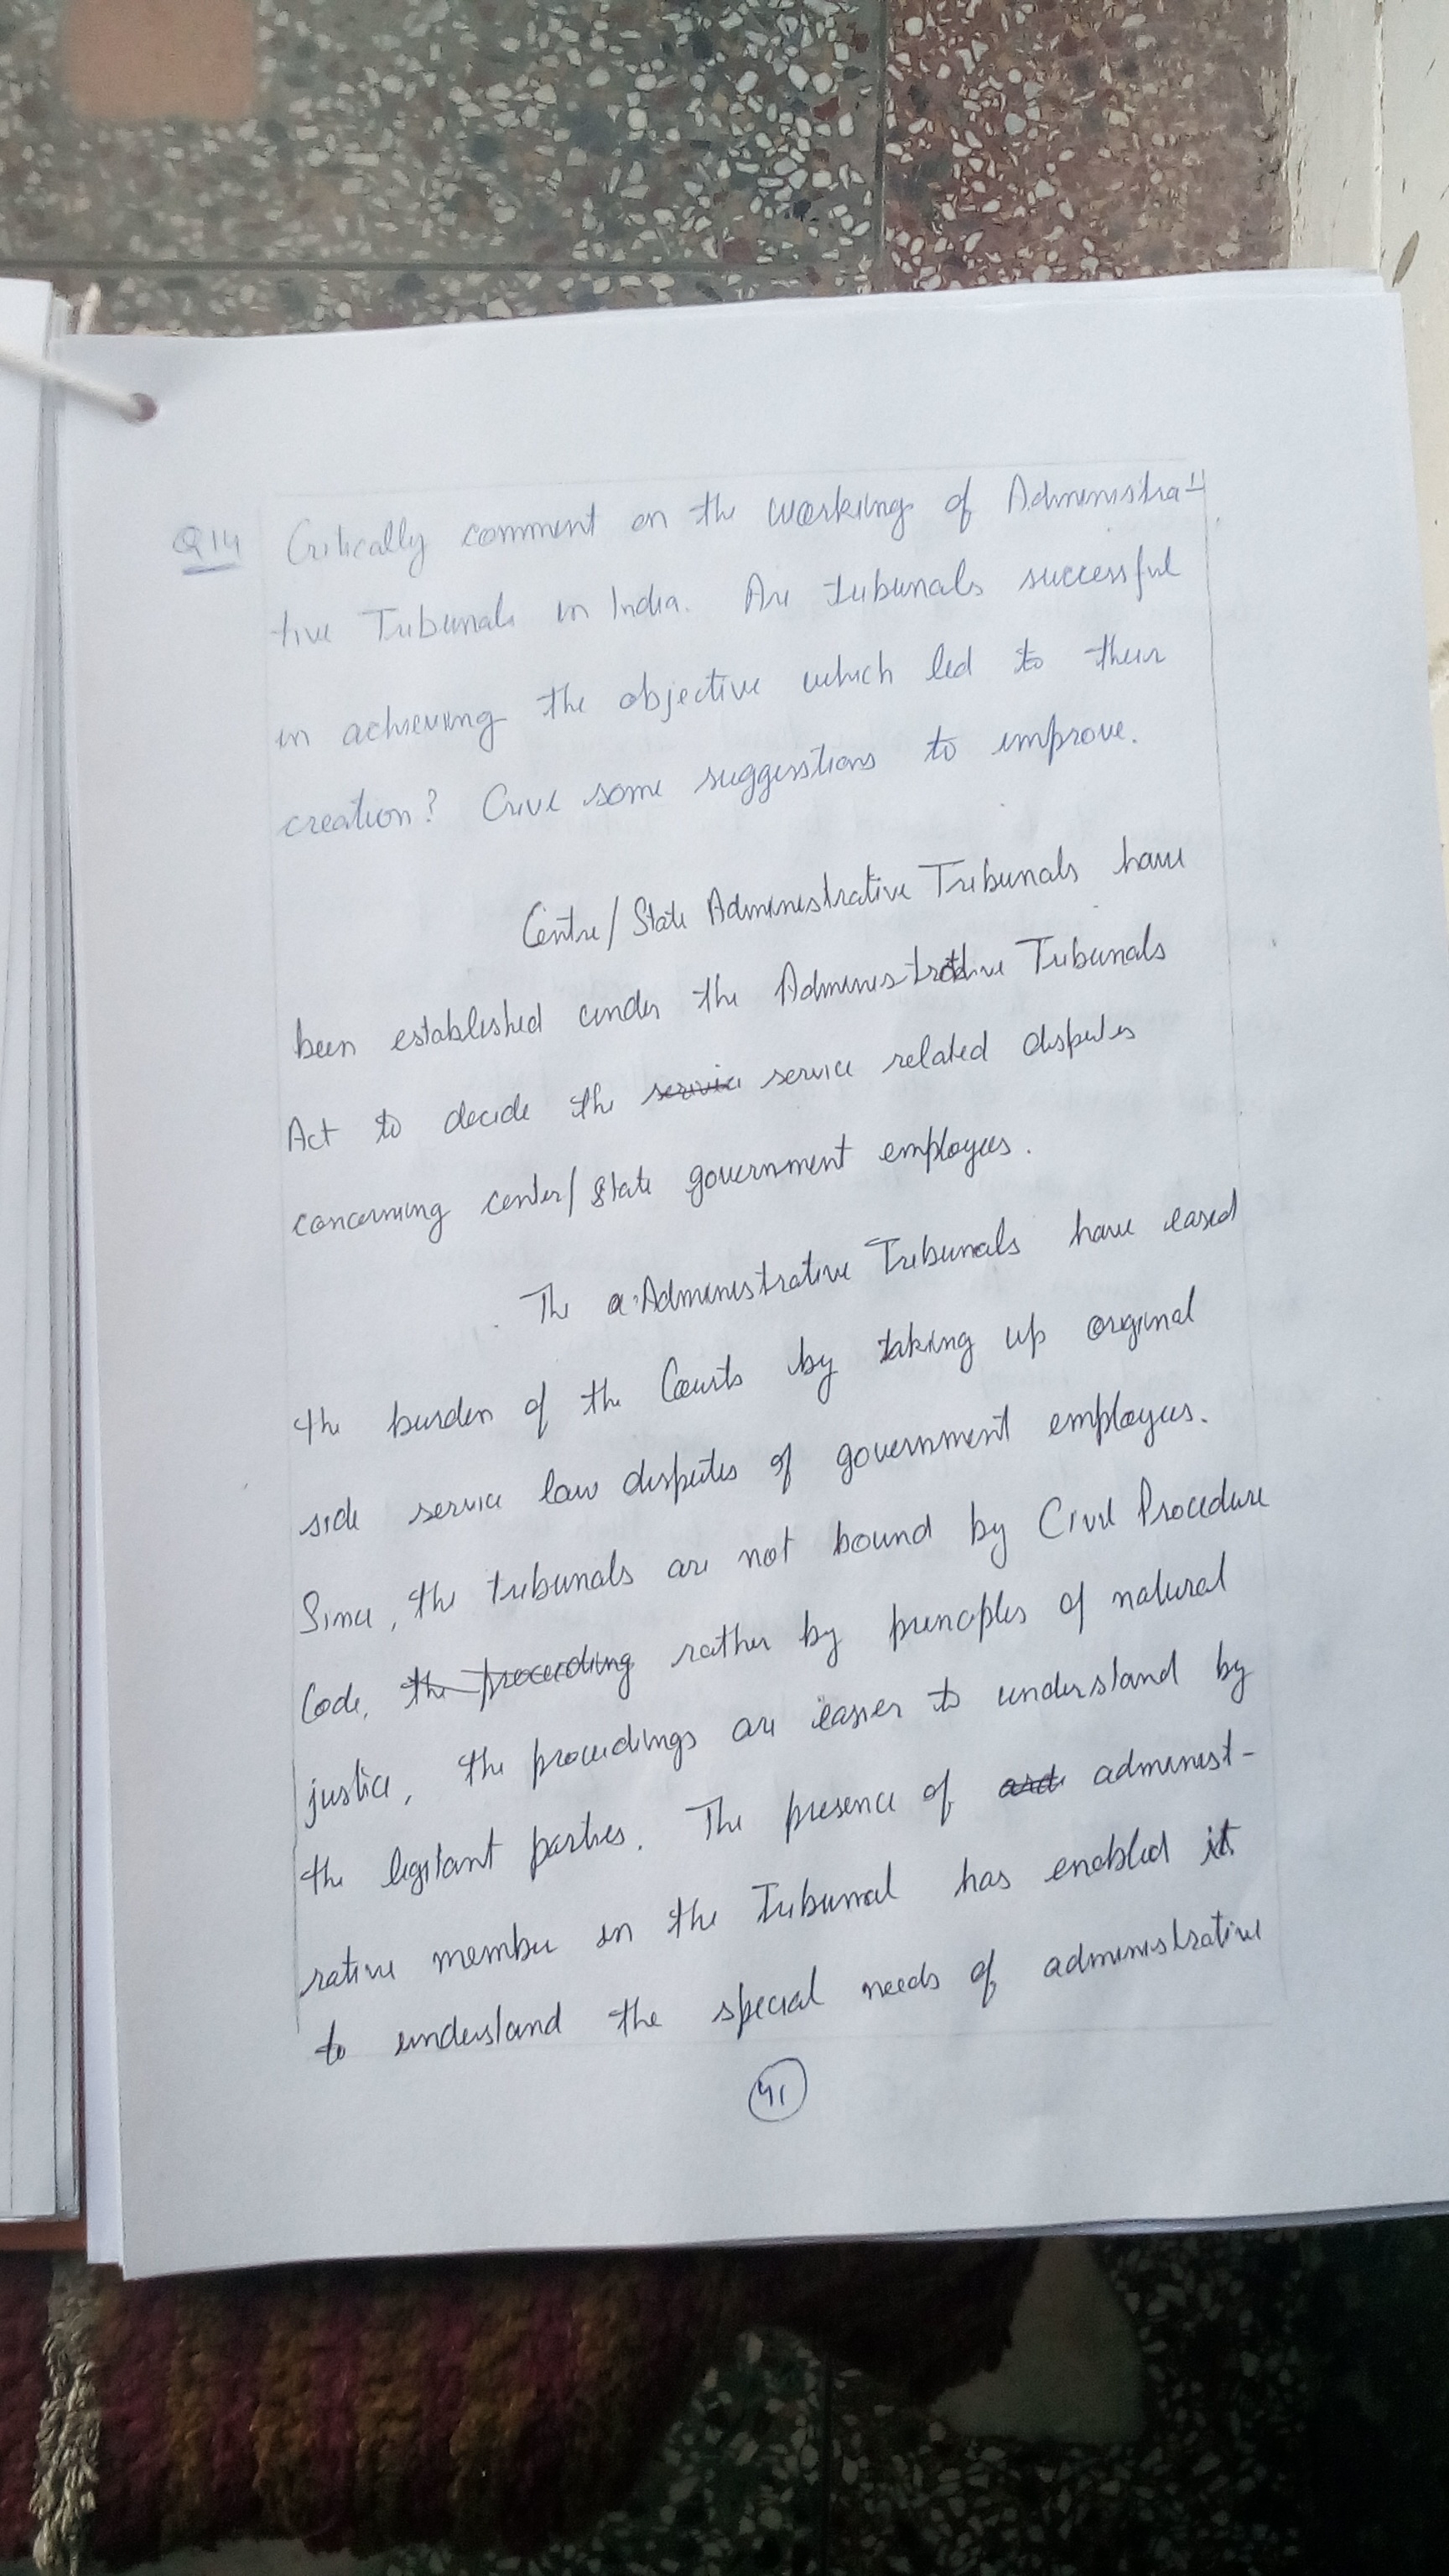 Q14 Critically comment on the working of Administra-
tive Tribunals in India. Are tribunals successful
in achieving the objective which led to their
creation? Give some suggestions to improve.
Centre/State Administrative Tribunals have
been established under the Administrative Tribunals
Act to decide the service service related disputes
concerning center/state government employees.
The a. Administrative Tribunals have eased
the burden of the Courts by taking up original
side service law disputes of government employees.
Since, the tribunals are not bound by Civil Procedure
Code, the proceeding rather by principles of natural
justice, the proceedings are easier to understand by
the legitant parties. The presence of administ-
rative member in the Tribunal has enabled it
to understand the special needs of administrative
41